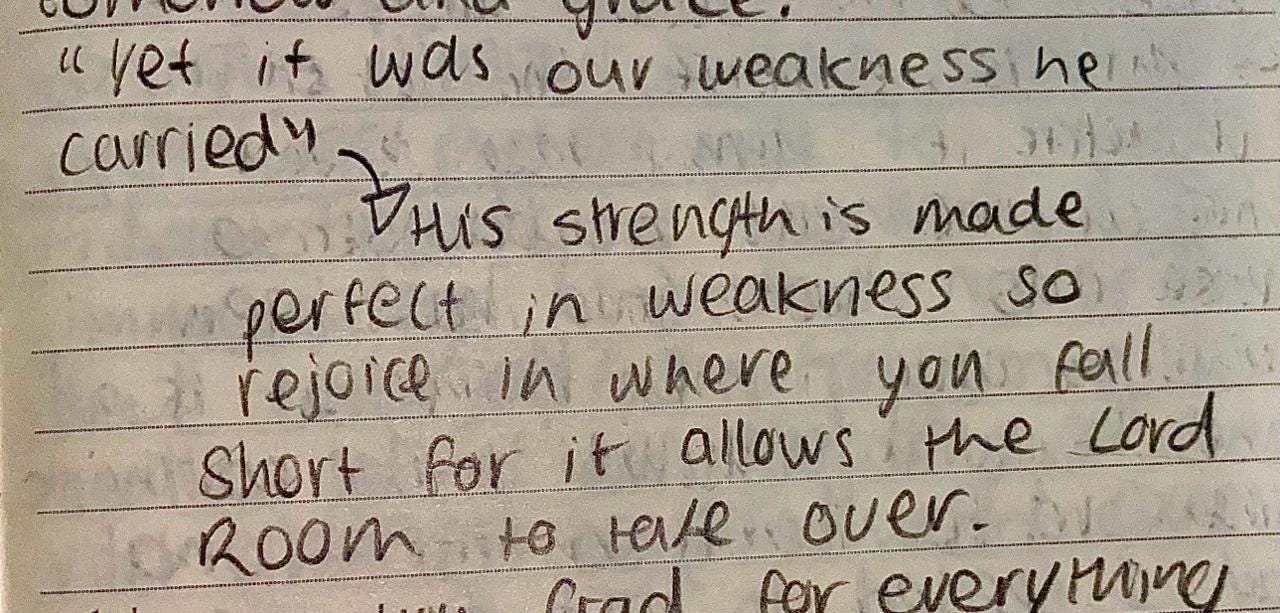 and grace.
"Yet it was our weakness he
carried"
His strength is made
perfect in weakness so
rejoice in where you fall
short for it allows the Lord
Room to take over.
for everything